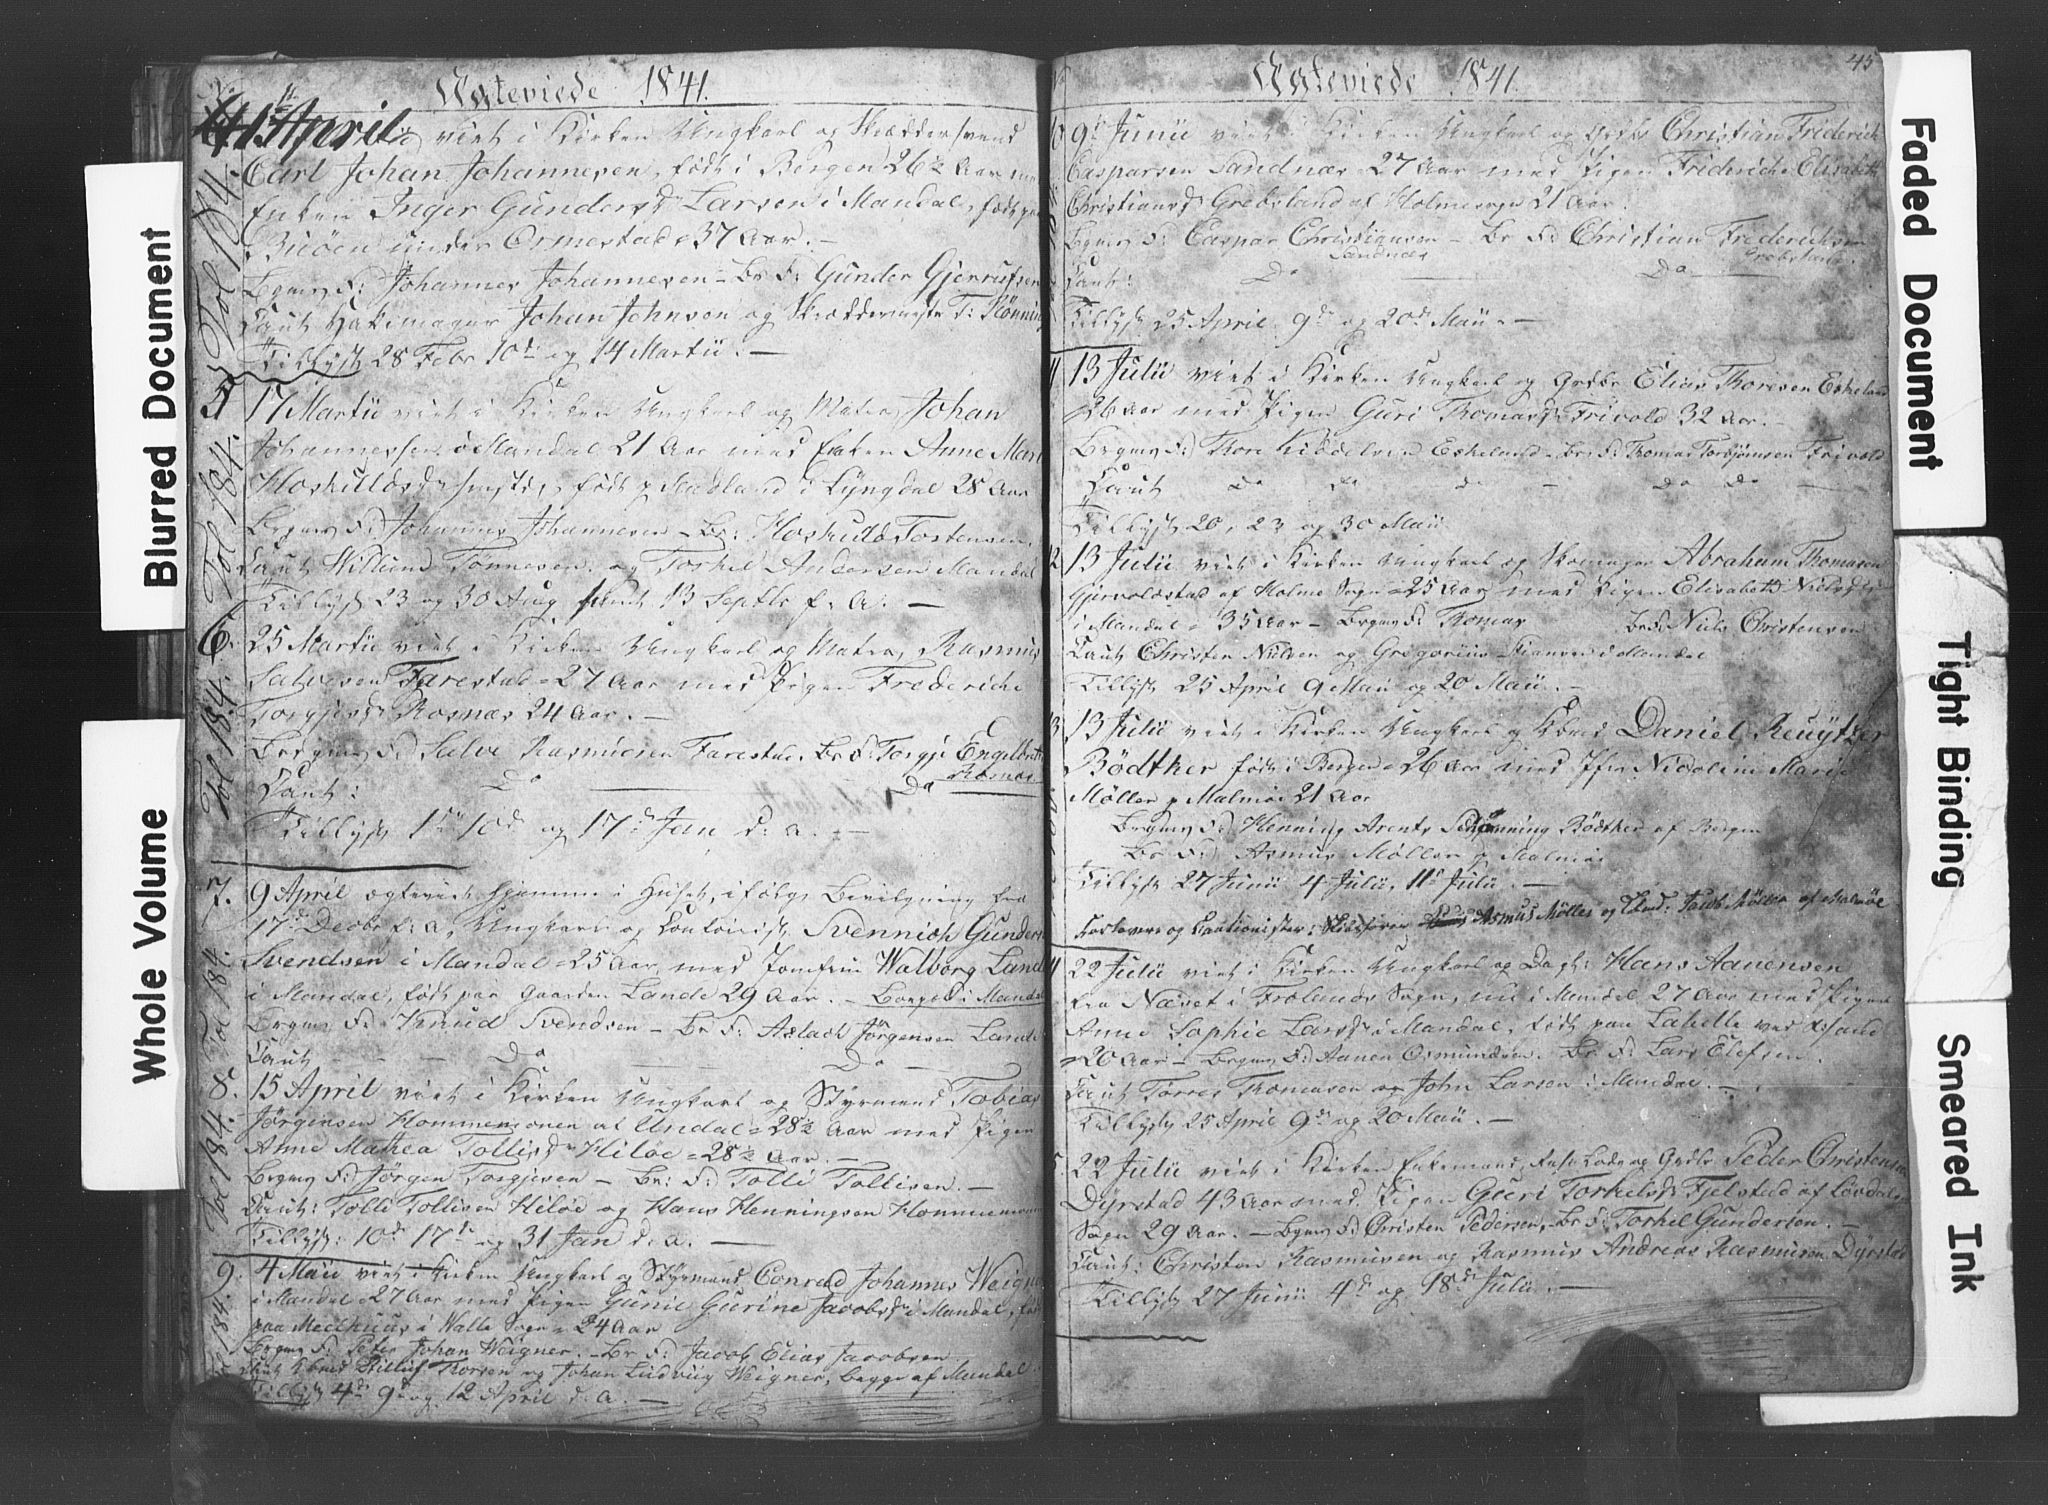 Ægteviede 1841.
4 15 April viet i Kirken Ungkarl og Skræddersvend
Carl Johan Johannesen, født i Bergen 26½ Aar med
Enken Inger Gundersd. Larsen i Mandal, født paa
Buöen under Ormestad 37 Aar. –
Brgms F: Johannes Johannesen – Br F: Gunder Gjerrufsen
Caut Johan Johnsen og Skræddermester T: Rönning
Tillyst 28 Febr 10de og 14 Martii. –
5 17 Martii viet i Kirken Ungkarl og Matros Johan
Johannessen i Mandal 21 Aar med Enken Anne Marie
Hoskuldsd. født p Hadland i Lyngdal 28 Aar
Brgms F: Johannes Johannesen – Br: Hoskuld Tostensen
Caut Willum Tönnesen og Torkel Andersen Mandal
Tillyst 23 og 30 Aug samt 13 Septb f. A. –
6. 25 Martii viet i Kirken Ungkarl og Matros Rasmus
Salvesen Farestad 27 Aar med Pigen Frederiche
Torgjersd. Rosnæs 24 Aar. –
Brgms F: Salve Rasmusen Farestad, Br F: Torgje Engelbrets
Rosnæs
Caut: Do – Do
Tillyst 1ste 10de og 17de Jan d. a. –
7. 9 April ægteviede hjemme i Huset, ifölge Bevilgning fra
17de Decbr f: a, Ungkarl og Contorist Svennich Gunder
Svendsen i Mandal 25 Aar med Jomfru Walborg Lande
i Mandal, født paa Gaarden Lande 29 Aar. –
Brgms F: Knud Svendsen – Br F: Aslach Jörgensen Lande
Caut – Do – Do –
8. 15 April viet i Kirken Ungkarl og Styrmand Tobias
Jörgensen Hommemonen af Undal 28½ Aar med Pigen
Anne Mathea Tollisd. Hilöe 28½ Aar. –
Brgms F: Jörgen Torgjersen – Br: F: Tolli Tollisen. –
Caut: Tolli Tollisen Hilöe og Hans Henningsen Hommemonen
Tillyst: 10de 17de og 31 Jan d. a. –
9. 4 Maii viet i Kirken Ungkarl og Styrmand Conrad Johannes Weigner
i Mandal 27 Aar med Pigen Gunie Gurine Jacobsd. i Mandal, født
paa Medhuus i Walle Sogn 24 Aar
Brgms F: Peter Johan Weigner. – Br F: Jacob Elias Jacobsen
Thorsen og Johan Ludvig Weigner, begge af Mandal
Tillyst 4de 9de og 12 April d. a. –
Tol 184.
Tol 184.
Tol 184.
Tol 184.
Tol 184.
184.
Ægteviede 1841.
45
9de Junii viet i Kirken Ungkarl og Grdbr Christian Friderich
Casparsen Sandnæs 27 Aar med Pigen Frideriche Elisabeth
Christiansd. Grebsland af Holmesogn 21 Aar.
Brgms F: Caspar Christiansen – Br F: Christian Friderichsen
Sandnæs Grebsland.
Caut: Do – Do –
Tillyst 25 April, 9de og 20de Maii. –
13 Julii viet i Kirken Ungkarl og Grdbr Elias Thoresen Eskeland
26 Aar med Pigen Guri Thomasd. Frivold 32 Aar. –
Brgms F: Thore Kiddelsen Eskeland – Br F: Thomas Torbjörnsen Frivold
Caut Do Do Do – Do Do –
Tillyst 20, 23 og 30 Maii
12 13 Julii viet i Kirken Ungkarl og Skomager Abraham Thomasen
Gjervoldstad af Holme Sogn 25 Aar med Pigen Elisabeth Nielsd.
i Mandal 35 Aar – Brgms F: Thomas Br F: Niels Christensen
Caut Christen Nielsen og Gregorius i Mandal
Tillyst 25 April 9 Maii og 20 Maii. –
13 13 Julii viet i Kirken Ungkarl og Kbmd Daniel Kruytzer
Bödtker født i Bergen 26 Aar med Jfr Nicoline Marie
Möller p Malmöe 21 Aar
Brgms F: Henning Arents Bödtker af Bergen
Br F: Asmus Möller p Malmöe
Tillyst 27 Junii 4 Julii, 11te Julii. –
Forlovere og Cautionister: Asmus Möller og Jacob Möller af Malmöe
22 Julii viet i Kirken Ungkarl og Dagl: Hans Aanensen
fra Næset i Frolands Sogn, nu i Mandal 27 Aar med Pigen
Anne Sophie Larsd. i Mandal, født paa Labelle ved Xsand
20 Aar – Brgms F: Aanen Osmundsen. Br F: Lars Elefsen.
Caut Törres Thomasen og John Larsen i Mandal. –
Tillyst 25 April 9de og 20 Maii. –
22 Julii viet i Kirken Enkemand, og Grdbr Peder Christensen
Dyrstad 43 Aar med Pigen Guri Torkelsd. Fjelstad af Lövdals
Sogn 29 Aar. – Brgms F: Christen Pedersen, Br F: Torkel Gundersen. –
Caut: Christen Rasmusen og Rasmus Andreas Rasmusen Dyrstad
Tillyst 27 Junii 4de og 18de Julii. –
Blurred Document
Whole Volume
Faded Document
Tight Binding
Smeared Ink